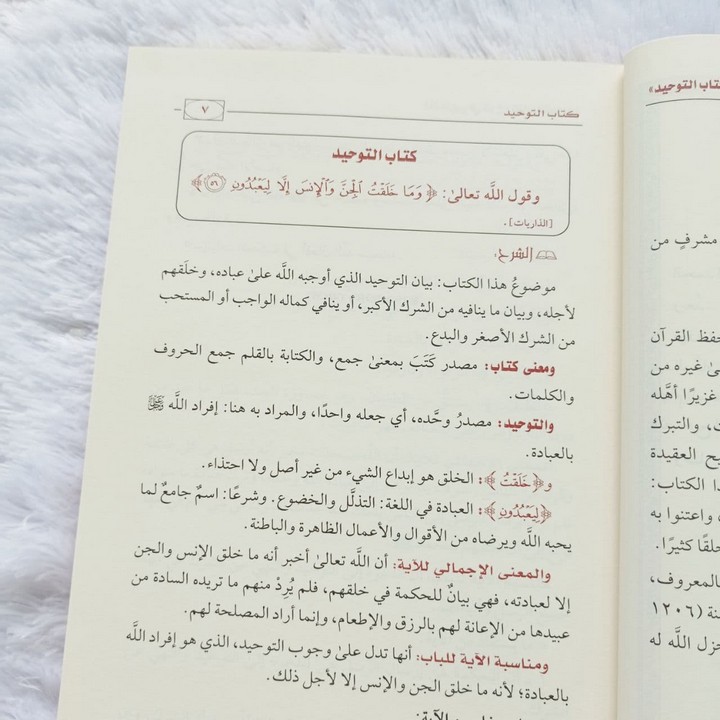 كتاب التوحيد
٧
كتاب التوحيد
وقول اللَّه تعالىٰ: ﴿وَمَا خَلَقْتُ ٱلْجِنَّ وَٱلْإِنسَ إِلَّا لِيَعْبُدُونِ ٥٦﴾
[الذاريات].
الشرح:
موضوعُ هذا الكتاب: بيان التوحيد الذي أوجبه اللَّه علىٰ عباده، وخلَقهم
لأجله، وبيان ما ينافيه من الشرك الأكبر، أو ينافي كماله الواجب أو المستحب
من الشرك الأصغر والبدع.
ومعنىٰ كتاب: مصدر كَتَبَ بمعنىٰ جمع، والكتابة بالقلم جمع الحروف
والكلمات.
والتوحيد: مصدرُ وحَّده، أي جعله واحدًا، والمراد به هنا: إفراد اللَّه ﷻ
بالعبادة.
و﴿خَلَقْتُ﴾: الخلق هو إبداع الشيء من غير أصل ولا احتذاء.
﴿لِيَعْبُدُونِ﴾: العبادة في اللغة: التذلَّل والخضوع. وشرعًا: اسمٌ جامعٌ لما
يحبه اللَّه ويرضاه من الأقوال والأعمال الظاهرة والباطنة.
والمعنى الإجمالي للآية: أن اللَّه تعالىٰ أخبر أنه ما خلق الإنس والجن
إلا لعبادته، فهي بيانٌ للحكمة في خلقهم، فلم يُرِدْ منهم ما تريده السادة من
عبيدها من الإعانة لهم بالرزق والإطعام، وإنما أراد المصلحة لهم.
ومناسبة الآية للباب: أنها تدل علىٰ وجوب التوحيد، الذي هو إفراد اللَّه
بالعبادة؛ لأنه ما خلق الجن والإنس إلا لأجل ذلك.
كتاب التوحيد»
مشرفٍ من
حفظ القرآن
ىٰ غيره من
غزيرًا أهَّله
والتبرك
ح العقيدة
ذا الكتاب:
واعتنوا به
خلقًا كثيرًا.
بالمعروف،
نة (١٢٠٦
جزل اللَّه له